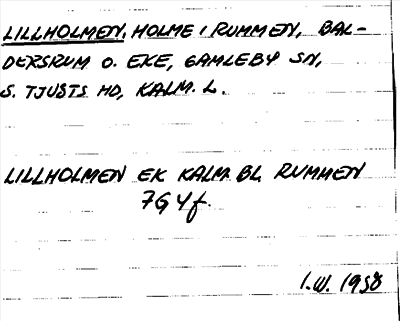 LILLHOLMEN, HOLME I RUMMEN, BAL-
DERSRUM O. EKE, GAMLEBY SN,
S. TJUSTS HD, KALM. L.
LILLHOLMEN EK KALM. BL. RUMMEN
7G4f.
I.W. 1958